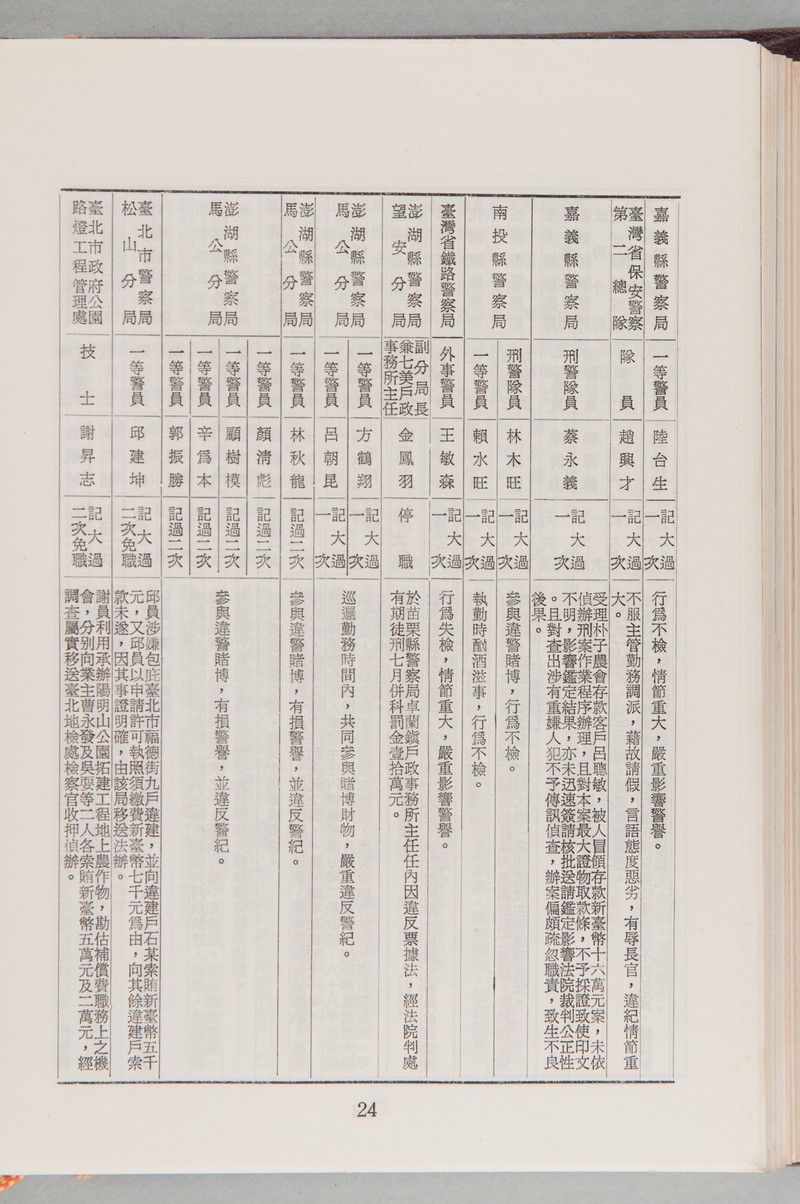 嘉義縣警察局
一等警員
陸台生
記大過
一次
行為不檢，情節重大，嚴重影響警譽。
臺灣省保安警察
第二總隊
隊員
趙興才
記大過
一次
不服主管勤務調派，藉故請假，言語態度惡劣，有辱長官，違紀情節重
大。
嘉義縣警察局
刑警隊員
蔡永義
記大過
一次
受理朴子農會存款客戶呂聰敏，被人冒領存款新臺幣十六萬元案，未依
偵辦刑案作業程序辦理，且對本案最大證物取款條，不予採證致使印文
不明，影響鑑定結果，亦未迅速簽請核批送請鑑定影響法院裁判公正性
。且對查出涉有重嫌人犯不予傳訊偵查，辦案偏頗疏忽職責，致生不良
後果。
南投縣警察局
刑警隊員
林木旺
記大過
一次
參與違警賭博，行為不檢。
一等警員
賴水旺
記大過
一次
執勤時酗酒滋事，行為不檢。
臺灣省鐵路警察局
外事警員
王敏森
記大過
一次
行爲失檢，情節重大，嚴重影響警譽。
澎湖縣警察局
望安分局
副分局長
兼七美戶政
事務所主任
金鳳羽
停職
於苗栗縣警察局卓蘭鎭戶政事務所主任任內因違反票據法，經法院判處
有期徒刑七月併科罰金壹拾萬元。
澎湖縣警察局
馬公分局
一等警員
方鶴翔
記大過
一次
一等警員
呂朝昆
記大過
一次
巡邏勤務時間內，共同參與賭博財物，嚴重違反警紀。
澎湖縣警察局
馬公分局
一等警員
林秋龍
記過二次
參與違警賭博，有損警譽，並違反警紀。
澎湖縣警察局
馬公分局
一等警員
顏清彪
記過二次
一等警員
顧樹模
記過二次
一等警員
辛爲本
記過二次
一等警員
郭振勝
記過二次
參與違警賭博，有損警譽，並違反警紀。
臺北市警察局
松山分局
一等警員
邱建坤
記大過
二次免職
邱員涉嫌包庇臺北市福德街九戶違建，並向違建戶石某索賄新臺幣五千
元，又邱員以申請許可執照須繳費新臺幣七千元爲由，向其餘違建戶索
款未遂，因其事證明確，由該局移送法辦。
臺北市政府公園
路燈工程管理處
技士
謝昇志
記大過
二次免職
謝員利用承辦陽明山公園拓建工程地上農作物，勘估補償費職務上之機
會，分別向業主曹永發及吳耍等二人各索賄新臺幣五萬元及二萬元，經
調查屬實移送臺北地檢處檢察官收押偵辦。
24